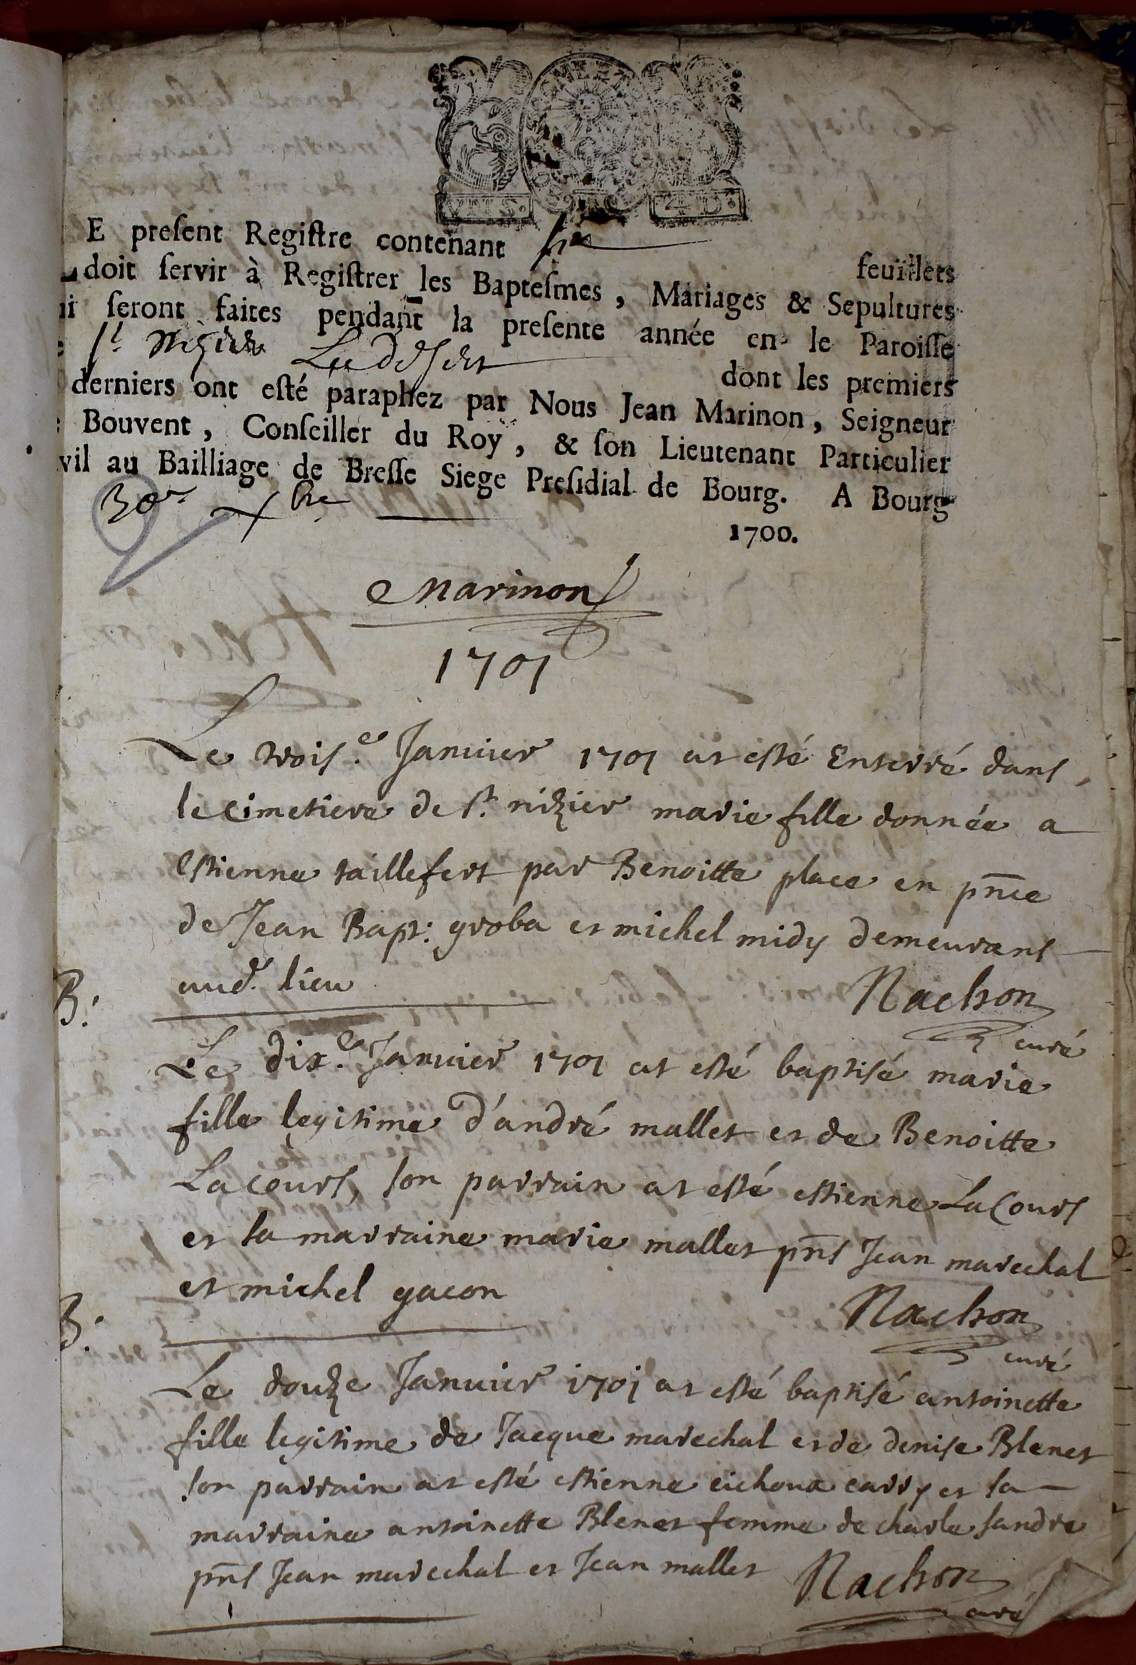 VITS. 4 D.
E present Registre contenant Six feuillets
doit servir à Registrer les Baptesmes, Mariages & Sepultures
i seront faites pendant la presente année en le Paroisse
St Nizier Ledesert dont les premiers
derniers ont esté paraphez par Nous Jean Marinon, Seigneur
Bouvent, Conseiller du Roy, & son Lieutenant Particulier
vil au Bailliage de Bresse Siege Presidial de Bourg. A Bourg
30e Xbre 1700.
Marinon
1701
Le trois.e Januier 1701 at esté Enterré dans
le cimetiere de St. nizier marie fille donnée a
Estienne taillefert par Benoitte place en pnce
de Jean Bapt: groba et michel midy demeurans
aud. lieu
Nachon
curé
B:
Le dix.e Januier 1701 at esté baptisé marie
fille legitime d'andré mallet et de Benoitte
Lacours, son parrain at esté estienne LaCours
et sa marraine marie mallet pns Jean marechal
et michel gacon
Nachon
curé
B:
Le douze Januier 1701 at esté baptisé antoinette
fille legitime de Jacque marechal et de denise Blenet
son parrain at esté estienne carry et sa
marraine antoinette Blenet femme de charle sandre
pns Jean marechal et Jean mallet
Nachon
curé